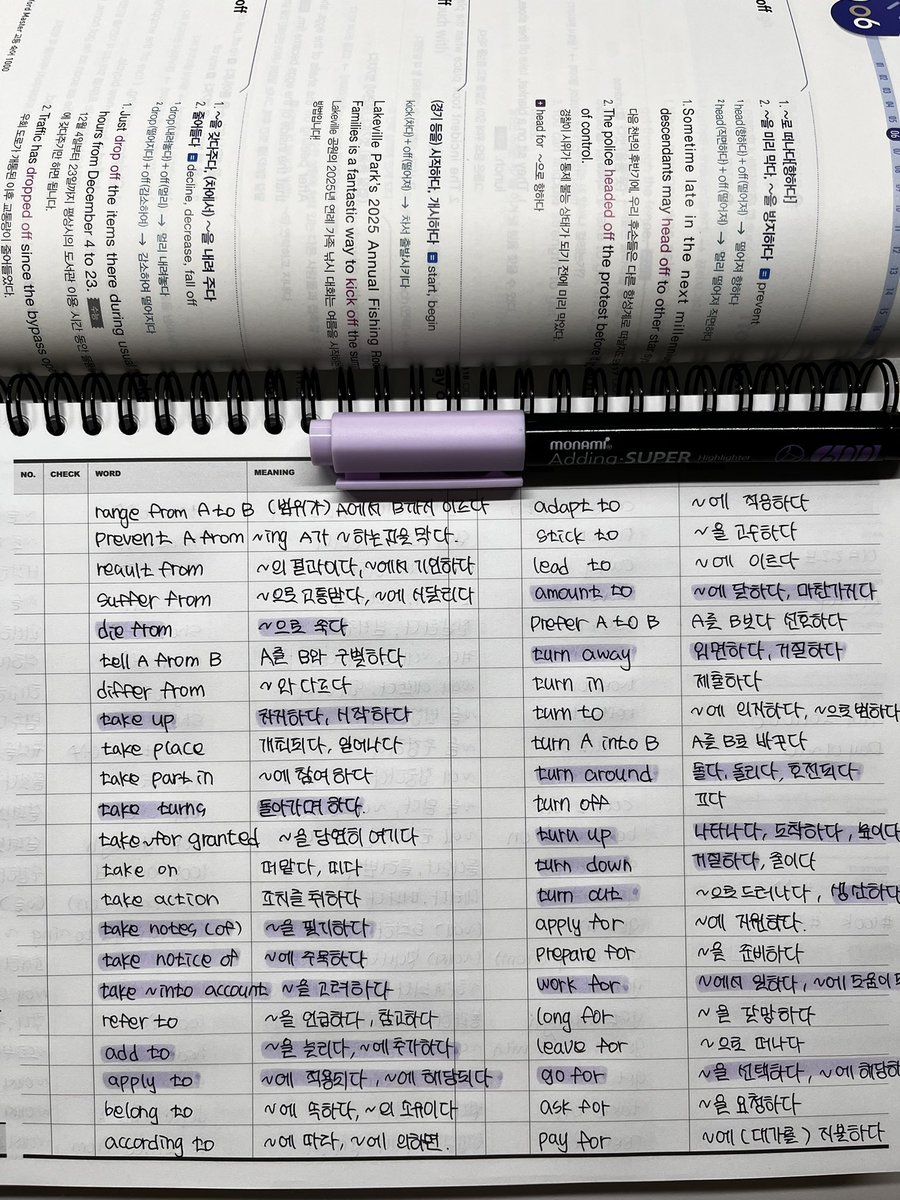 off
1. ~로 떠나다[향하다]
2. ~을 미리 막다, ~을 방지하다 = prevent
¹ head(향하다) + off(떨어져) → 떨어져 향하다
² head(직면하다) + off(떨어져) → 멀리 떨어져 직면하다
1. Sometime late in the next
descendants may head off to other star
다음 천년의 후반기에 우리 후손들은 다른 항성계로
2. The police headed off the protest before
of control.
경찰이 시위가 통제 불능 상태가 되기 전에 미리 막았다.
+ head for ~으로 향하다
off
(경기 등을) 시작하다, 개시하다 = start, begin
kick(차다) + off(떨어져) → 차서 출발시키다
Lakeville Park's 2025 Annual Fishing
Families is a fantastic way to kick off the
Lakeville 공원의 2025년 연례 가족 낚시 대회는 여름을
방법입니다.
off
1. ~을 갖다주다, (차에서) ~을 내려 주다
2. 줄어들다 = decline, decrease, fall off
¹ drop(내려놓다) + off(멀리) → 멀리 내려놓다
² drop(떨어지다) + off(감소하여) → 감소하여 떨어지다
1. Just drop off the items there during
hours from December 4 to 23.
12월 4일부터 23일까지 평상시의 도서관 이용 시간 동안
에 갖다주기만 하면 됩니다.
2. Traffic has dropped off since the bypass
우회 도로가 개통된 이후 교통량이 줄어들었다.
06
monami
Adding·SUPER Highlighter
NO. CHECK WORD MEANING
range from A to B (범위가) A에서 B까지 이르다
prevent A from ~ing A가 ~하는것을 막다.
result from ~의 결과이다, ~에서 기인하다
suffer from ~으로 고통받다, ~에 시달리다
die from ~으로 죽다
tell A from B A를 B와 구별하다
differ from ~와 다르다
take up 차지하다, 시작하다
take place 개최되다, 일어나다
take part in ~에 참여하다
take turns 돌아가며 하다.
take~for granted ~을 당연히 여기다
take on 떠맡다, 띠다
take action 조치를 취하다
take notes (of) ~을 필기하다
take notice of ~에 주목하다
take ~into account ~을 고려하다
refer to ~을 언급하다, 참고하다
add to ~을 늘리다, ~에 추가하다
apply to ~에 적용되다, ~에 해당되다
belong to ~에 속하다, ~의 소유이다
according to ~에 따라, ~에 의하면.
adapt to ~에 적응하다
stick to ~을 고수하다
lead to ~에 이르다
amount to ~에 달하다, 마찬가지다
prefer A to B A를 B보다 선호하다
turn away 외면하다, 거절하다
turn in 제출하다
turn to ~에 의지하다, ~으로 변하다
turn A into B A를 B로 바꾸다
turn around 돌다, 돌리다, 호전되다
turn off 끄다
turn up 나타나다, 도착하다, 높이다
turn down 거절하다, 줄이다
turn out ~으로 드러나다, 생산하다
apply for ~에 지원하다.
prepare for ~을 준비하다
work for ~에서 일하다, ~에 도움이
long for ~을 갈망하다
leave for ~으로 떠나다
go for ~을 선택하다, ~에 해당하
ask for ~을 요청하다
pay for ~에 (대가를) 지불하다